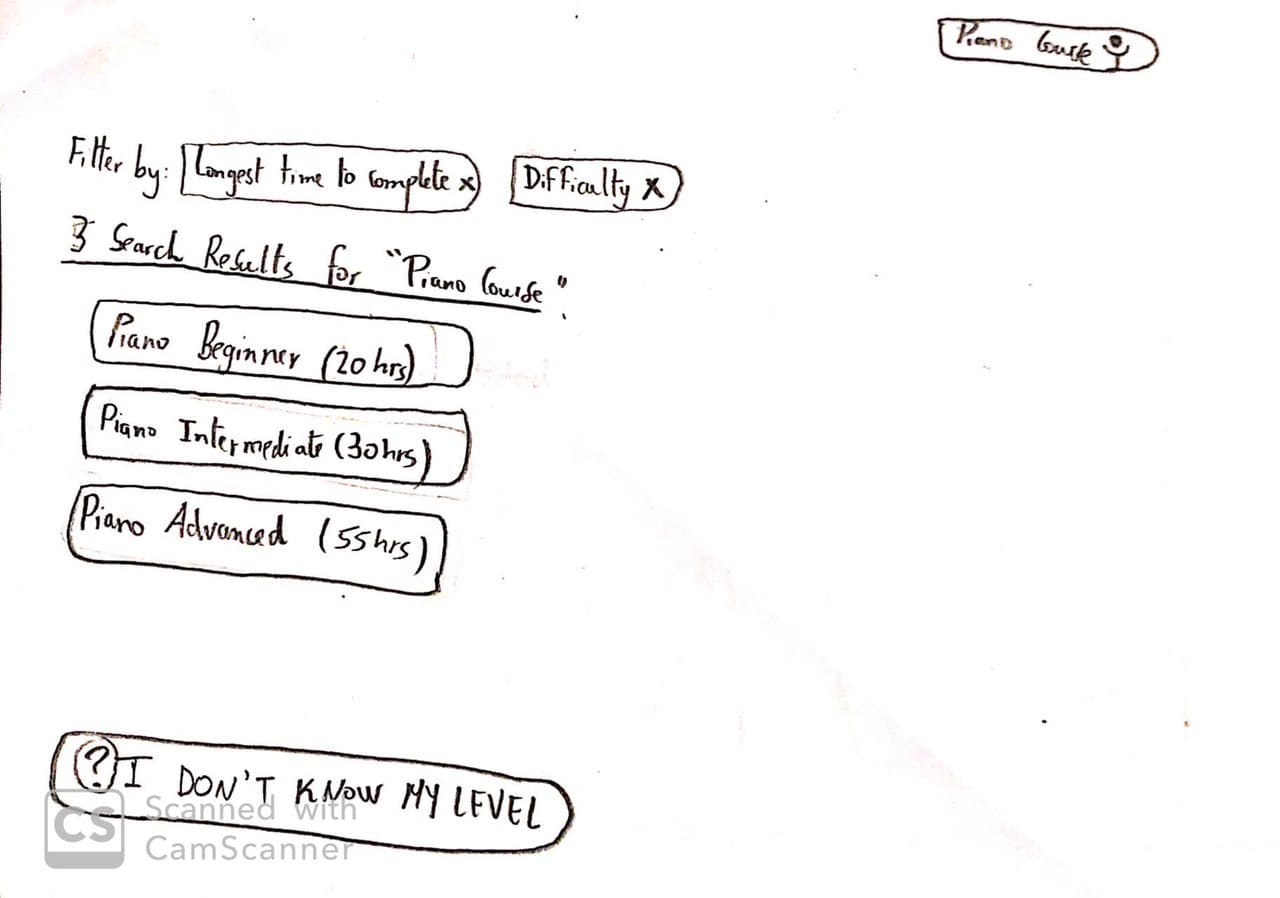 Piano Course
Filter by: Longest time to complete x Difficulty x
3 Search Results for "Piano Course".
Piano Beginner (20 hrs)
Piano Intermediate (30hrs)
Piano Advanced (55hrs)
? I DON'T KNOW MY LEVEL
CS Scanned with
CamScanner